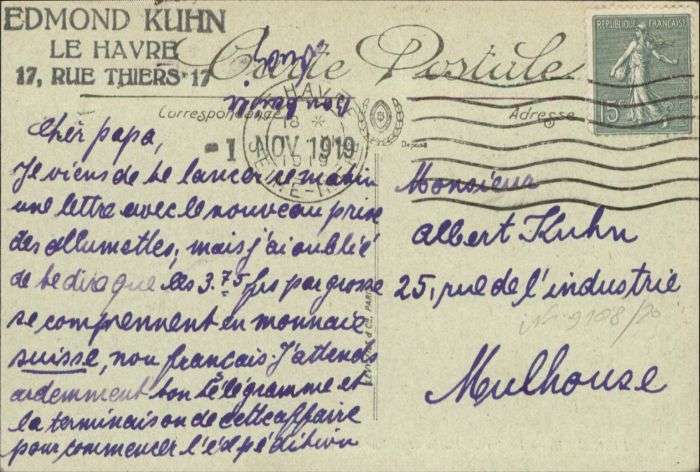 EDMOND KUHN
LE HAVRE
17, RUE THIERS 17
Carte Postale
Correspondance
Adresse
RÉPUBLIQUE FRANÇAISE
15
HAVRE
18 *
-1 NOV 1919
SEINE-
Cher papa,
Je viens de te lancer ce matin
une lettre avec le nouveau prix
des allumettes, mais j'ai oublié
de te dire que les 3.75 frs par grosse
se comprennent en monnaie
suisse, non français. J'attends
ardemment ton télégramme et
la terminaison de cette affaire
pour commencer l'expédition
Bon baiser
Monsieur
Albert Kuhn
25, rue de l'industrie
Mulhouse